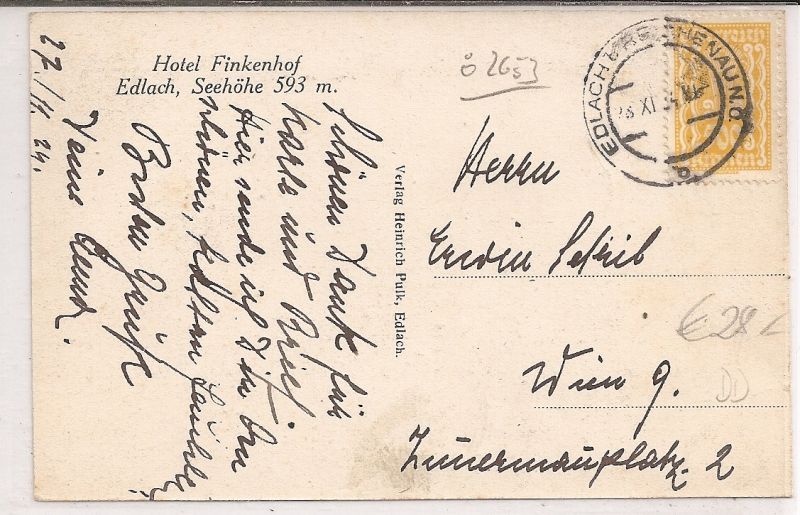 Hotel Finkenhof
Edlach, Seehöhe 593 m.
27./XI. 24.
Schönen Dank für
Karte und Brief.
Hier sende ich Dir den
schönen,
Besten Gruß
Deine
Verlag Heinrich Pulk, Edlach.
ö 2653
EDLACH B. REICHENAU N.Ö.
XI
Herrn
Erwin
Wien 9.
Zimmermannplatz 2
€ 28
DD